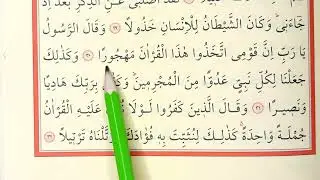 لَقَدْ اَضَلَّنٖى عَنِ الذِّكْرِ بَعْدَ اِذْ
جَٓاءَنٖى وَكَانَ الشَّيْطَانُ لِلْاِنْسَانِ خَذُولًا ﴿٢٩﴾ وَقَالَ الرَّسُولُ
يَا رَبِّ اِنَّ قَوْمِى اتَّخَذُوا هٰذَا الْقُرْاٰنَ مَهْجُورًا ﴿٣٠﴾ وَكَذٰلِكَ
جَعَلْنَا لِكُلِّ نَبِىٍّ عَدُوًّا مِنَ الْمُجْرِمٖينَ وَكَفٰى بِرَبِّكَ هَادِيًا
وَنَصٖيرًا ﴿٣١﴾ وَقَالَ الَّذٖينَ كَفَرُوا لَوْلَا عَلَيْهِ الْقُرْاٰنُ
جُمْلَةً وَاحِدَةً كَذٰلِكَ لِنُثَبِّتَ بِهٖ فُؤَادَكَ وَرَتَّلْنَاهُ تَرْتٖيلًا ﴿٣٢﴾